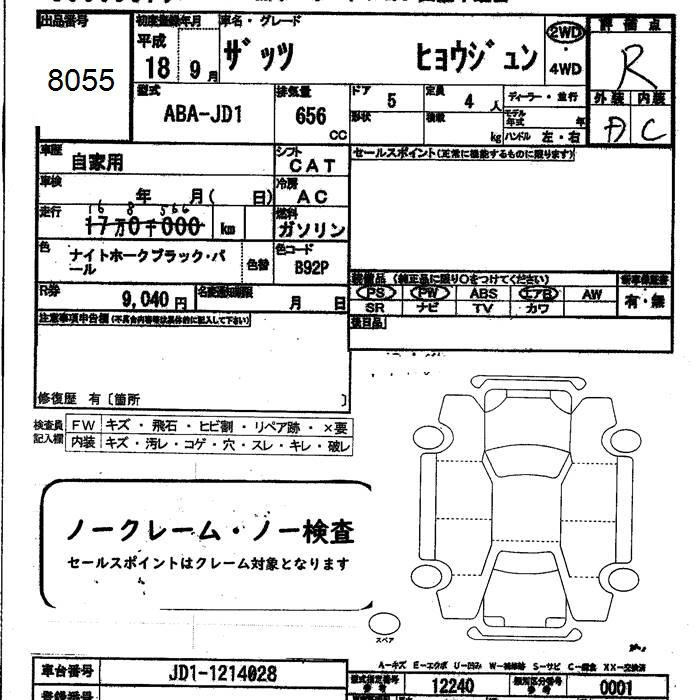 出品番号
8055
初度登録年月
平成
18 9 月
車名・グレード
ザッツ ヒョウジュン
2WD
・
4WD
評価点
R
外装 内装
C
型式
ABA-JD1
排気量
656
CC
ドア 5
定員 4 人
形状
積載 kg
ディーラー・並行
モデル年式 年
ハンドル 左・右
車歴
自家用
シフト
CAT
車検
年 月( 日)
冷房
AC
走行
16 8 566
km
燃料
ガソリン
色
ナイトホークブラック・パール
色替
色コード
B92P
R券
9,040 円
名変通知期限
月 日
セールスポイント(正常に機能するものに限ります)
装備品 (純正品に限り○をつけてください)
PS PW ABS エアB AW
SR ナビ TV カワ
新車保証書
有・無
後日品
注意事項申告欄(不具合内容等は具体的に記入して下さい)
修復歴 有〔箇所 〕
検査員
記入欄
FW キズ・飛石・ヒビ割・リペア跡・×要
内装 キズ・汚レ・コゲ・穴・スレ・キレ・破レ
ノークレーム・ノー検査
セールスポイントはクレーム対象となります
スペア
A-キズ E-エクボ U-凹み W-補修跡 S-サビ C-腐食 XX-交換済
車台番号
JD1-1214028
型式指定番号
参考
12240
類別区分番号
参考
0001
登録番号